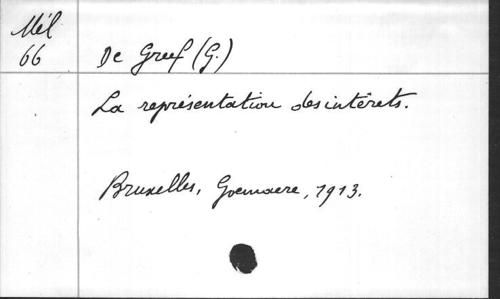 Mél
66
De Greef (G.)
La représentation des intérets.
Bruxelles, Goemaere, 1913.